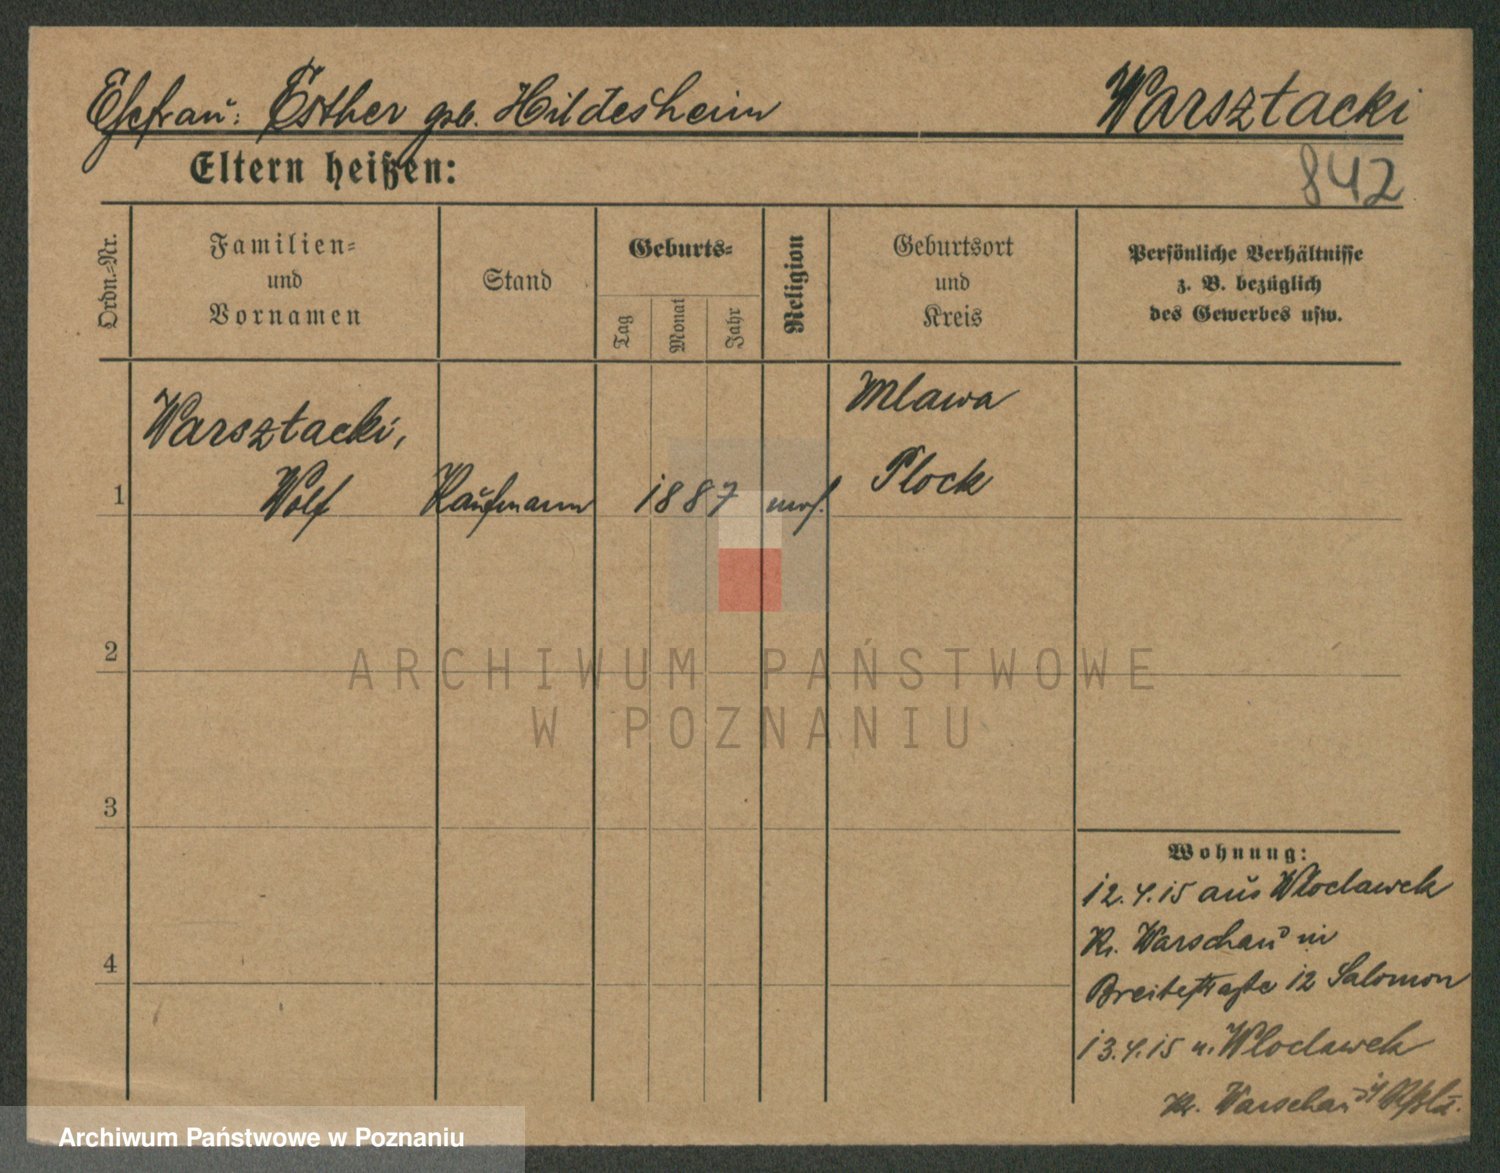 Ehefrau: Esther geb. Hildesheim
Warsztacki
842
Eltern heißen:
Ordn.=Nr.
Familien=
und
Vornamen
Stand
Geburts=
Tag
Monat
Jahr
Religion
Geburtsort
und
Kreis
Persönliche Verhältnisse
z. B. bezüglich
des Gewerbes usw.
1
Warsztacki,
Wolf
Kaufmann
1887
mos.
Mlawa
Plock
2
3
4
Wohnung:
12.4.15 aus Wloclawek
Kr. Warschau in
Breitestraße 12 Salomon
13.4.15 n. Wloclawek
Kr. Warschau
ARCHIWUM PAŃSTWOWE
W POZNANIU
Archiwum Państwowe w Poznaniu